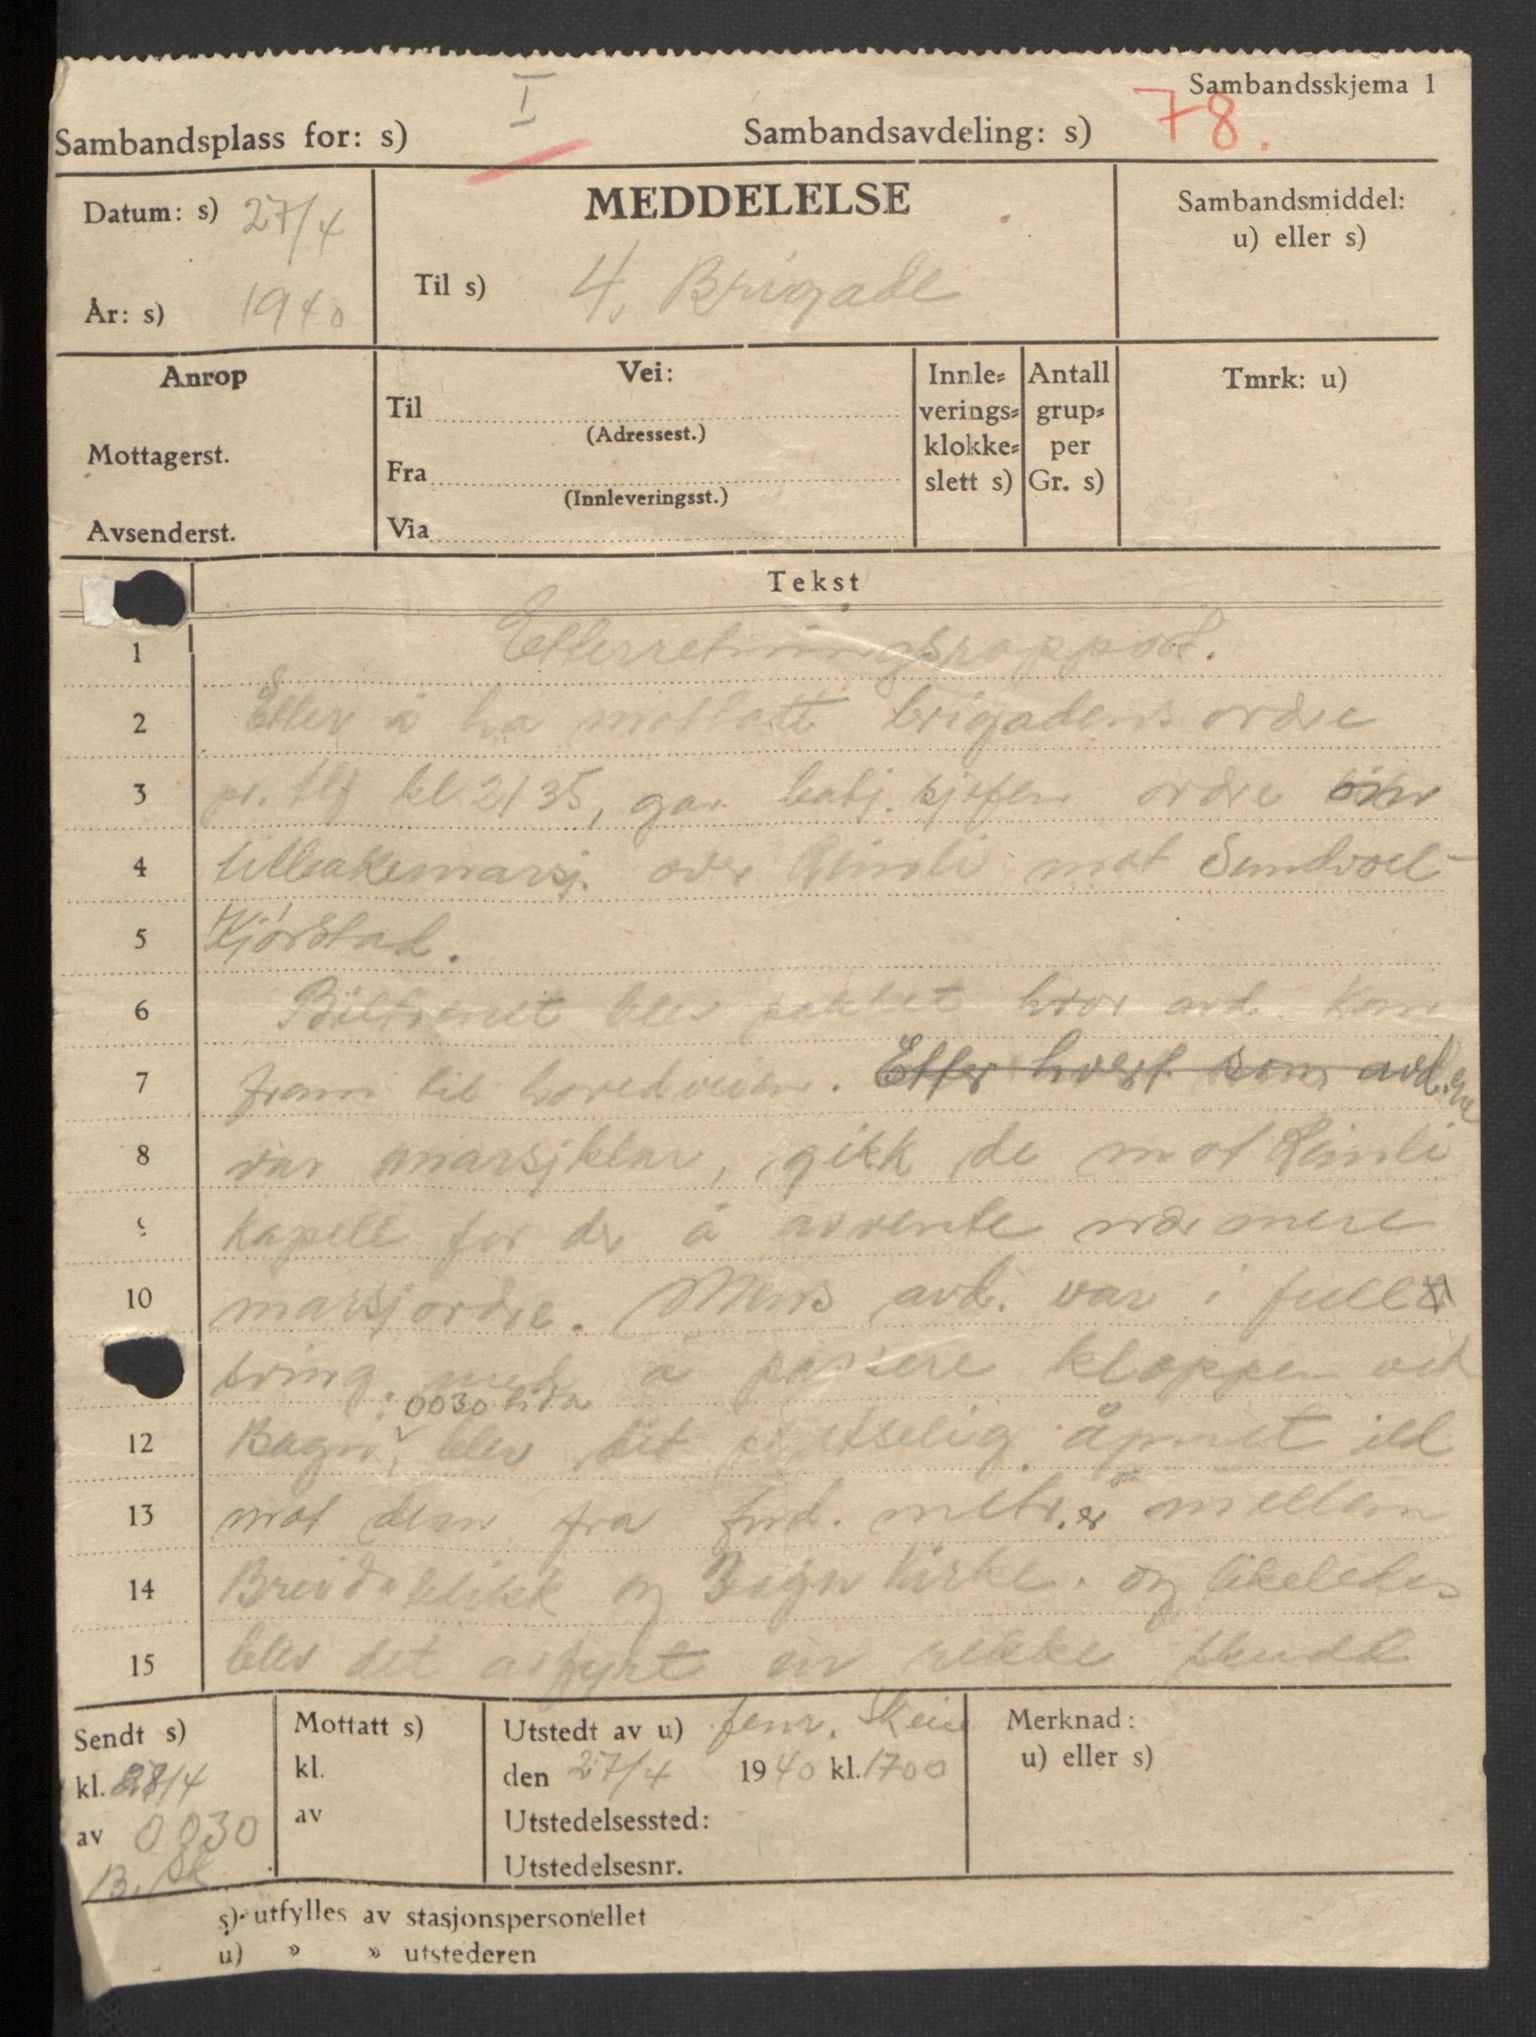 Sambandsskjema 1
I
78.
Sambandsplass for: s)
Sambandsavdeling: s)
Datum: s) 27/4
År: s) 1940
MEDDELELSE
Til s) 4. Brigade
Sambandsmiddel:
u) eller s)
Anrop
Mottagerst.
Avsenderst.
Vei:
Til
(Adressest.)
Fra
(Innleveringsst.)
Via
Innle=
verings=
klokke=
slett s)
Antall
grup=
per
Gr. s)
Tmrk: u)
Tekst
1 Etterretningsrapport.
2 Etter å ha mottatt brigadens ordre
3 pr. tlf kl 2135, gav batj. sjefen ordre om
4 tilbakemarsj over Reinli mot Sundvoll-
5 Kjørstad.
6 Biltrenet blev pakket hvor avd. kom
7 fram til hovedveien. Etter hvert som avd.ene
8 var marsjklar, gikk de mot Reinli
9 kapell for der å avvente nærmere
10 marsjordre. Mens avd. var i full
sving med å passere kloppen ved
0030 tida
12 Bagn, blev det plutselig åpnet ild
13 mot dem fra fiend. mitr.er mellem
14 Breidablikk og Bagn kirke. og likeledes
15 blev det avfyrt en rekke skudd
Sendt s)
kl. 28/4
av 0030
B. Sk
Mottatt s)
kl.
av
Utstedt av u) fenr. Skei
den 27/4 1940 kl. 1700
Utstedelsessted:
Utstedelsesnr.
Merknad:
u) eller s)
s) utfylles av stasjonspersonellet
u) » » utstederen